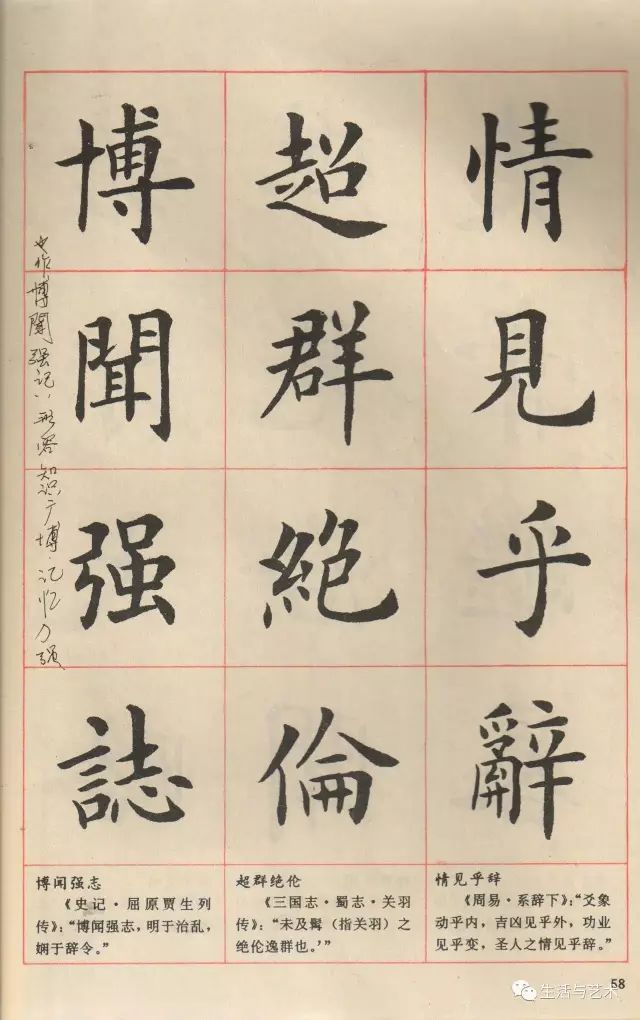 情見乎辭
超群絶倫
博聞强誌
也作"博闻强记"，形容知识广博，记忆力强
情见乎辞
《周易·系辞下》：“爻象
动乎内，吉凶见乎外，功业
见乎变，圣人之情见乎辞。”
超群绝伦
《三国志·蜀志·关羽
传》：“未及髯（指关羽）之
绝伦逸群也。’”
博闻强志
《史记·屈原贾生列
传》：“博闻强志，明于治乱，
娴于辞令。”
58
生活与艺术